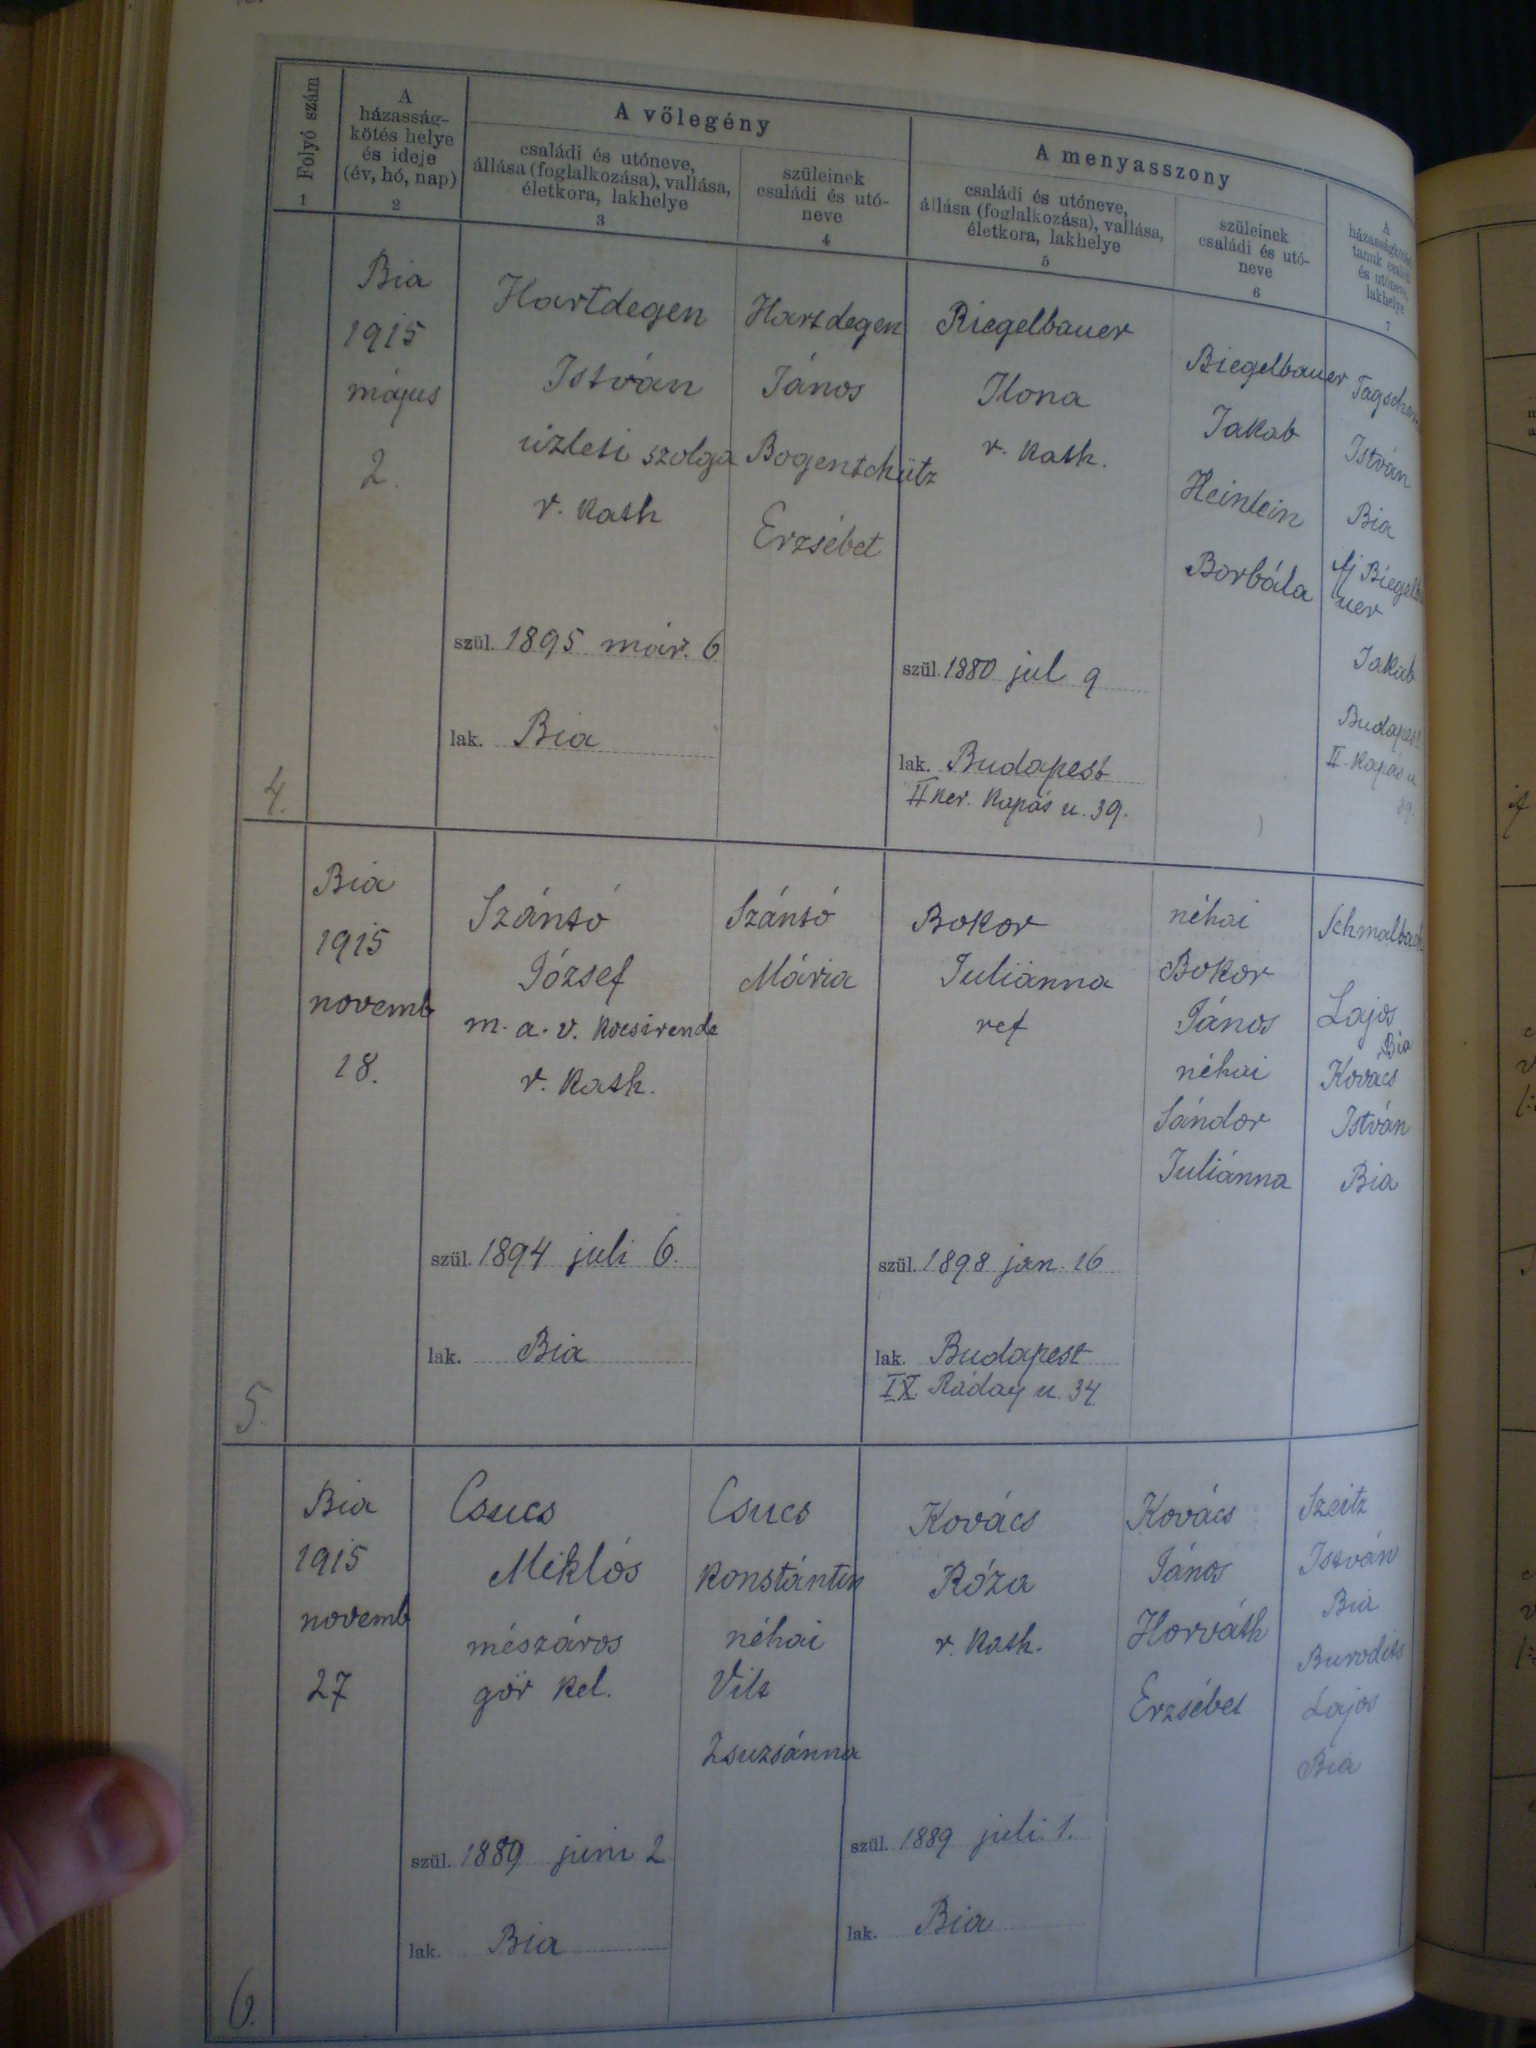 Folyó szám
1
A
házasság-
kötés helye
és ideje
(év, hó, nap)
2
A vőlegény
családi és utóneve,
állása (foglalkozása), vallása,
életkora, lakhelye
3
szüleinek
családi és utó-
neve
4
A menyasszony
családi és utóneve,
állása (foglalkozása), vallása,
életkora, lakhelye
5
szüleinek
családi és utó-
neve
6
A
tanuk
és utóneve,
lakhelye
7
4.
Bia
1915
május
2.
Hartdegen
István
üzleti szolga
r. kath
szül. 1895 már. 6
lak. Bia
Hartdegen
János
Bogentchütz
Erzsébet
Riegelbauer
Ilona
r. kath.
szül. 1880 jul 9
lak. Budapest
II ker. Kapás u. 39.
Biegelbauer
Jakab
Heinlein
Borbála
István
Bia
ifj
uer
Jakab
Budapest
II. Kapás u
39.
5.
Bia
1915
novemb
18.
Szántó
József
m. a. v. kocsirende
r. kath.
szül. 1894 juli 6.
lak. Bia
Szántó
Mária
Bokor
Juliánna
ref
szül. 1898 jan. 16
lak. Budapest
IX. Ráday u. 34
néhai
Bokor
János
néhai
Sándor
Juliánna
Schmalbach
Lajos
Bia
Kovács
István
Bia
6.
Bia
1915
novemb
27
Csucs
Miklós
mészáros
gör kel.
szül. 1889 juni 2
lak. Bia
Csucs
Konstántin
néhai
Vilt
Zsuzsánna
Kovács
Róza
r. kath.
szül. 1889 juli. 1.
lak. Bia
Kovács
János
Horváth
Erzsébet
Szeitz
István
Bia
Burodits
Lajos
Bia